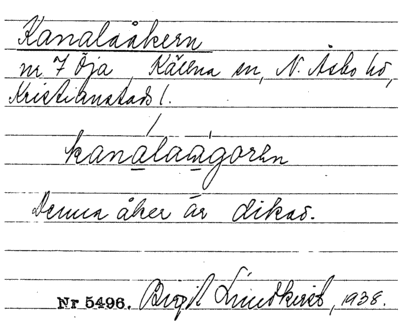 Kanalaåkern
nr 7 Öja, Källna sn, N. Åsbo hd,
Kristianstads l.
kanalaågoren
Denna åker är dikad.
Nr 5496. Birgit Lindkvist, 1938.